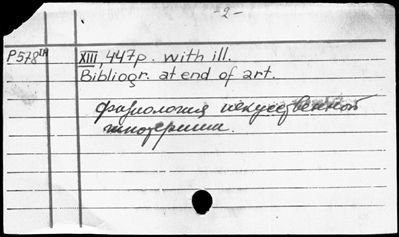 -2-
P578IA XIII, 447p. with ill.
Bibliogr. at end of art.
физиология искусственной
гипотермии.